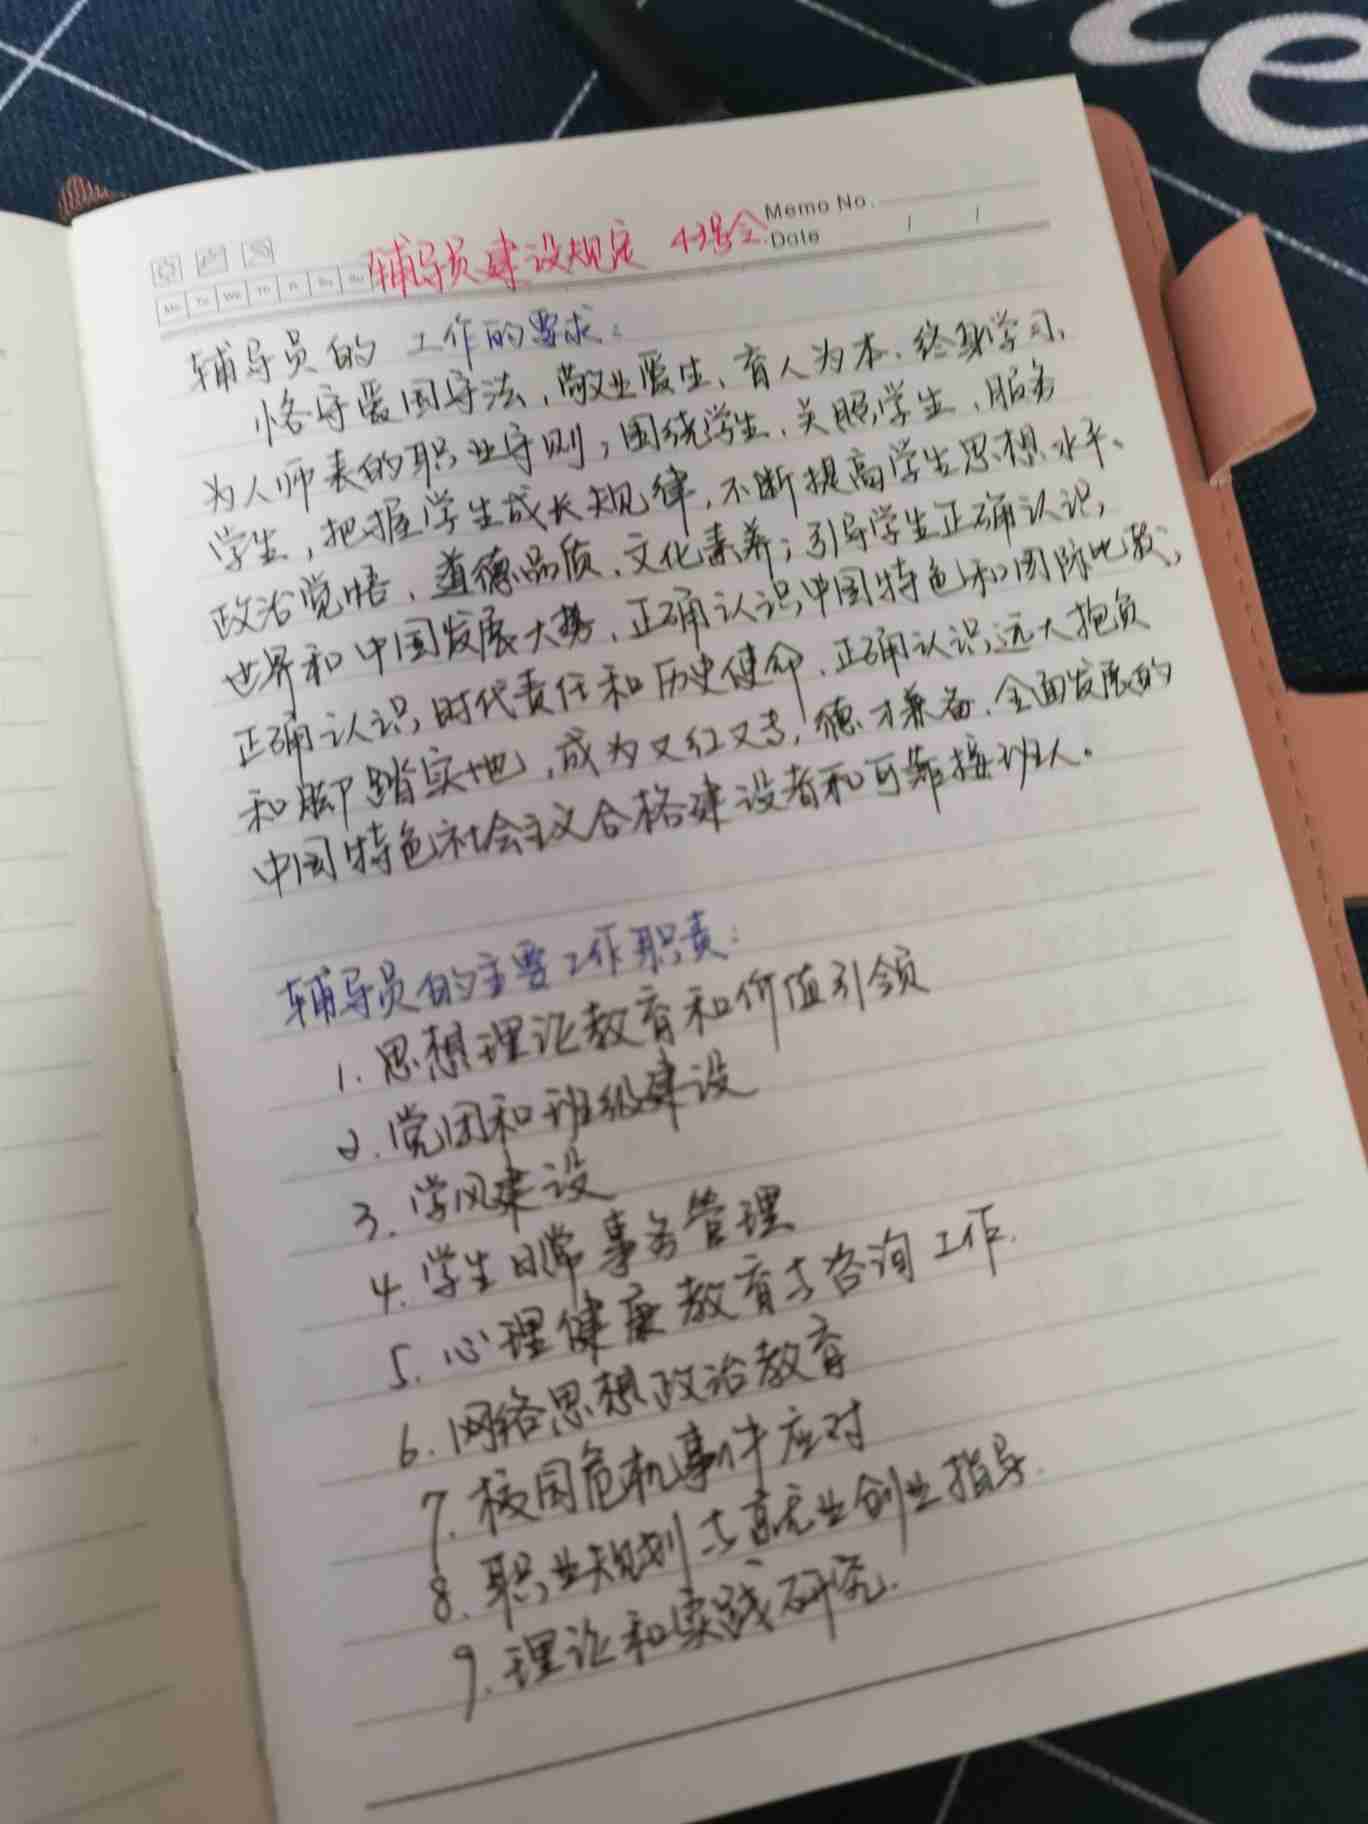 Memo No.
Date / /
Mo Tu We Th Fr Sa Su
辅导员建设规定 43号令
辅导员的 工作的要求：
恪守爱国守法、敬业爱生、育人为本、终身学习、
为人师表的职业守则；围绕学生、关照学生、服务
学生，把握学生成长规律，不断提高学生思想水平、
政治觉悟、道德品质、文化素养；引导学生正确认识
世界和中国发展大势、正确认识中国特色和国际比较、
正确认识时代责任和历史使命、正确认识远大抱负
和脚踏实地，成为又红又专，德才兼备、全面发展的
中国特色社会主义合格建设者和可靠接班人。
辅导员的主要工作职责：
1. 思想理论教育和价值引领
2. 党团和班级建设
3. 学风建设
4. 学生日常事务管理
5. 心理健康教育与咨询工作.
6. 网络思想政治教育
7. 校园危机事件应对
8. 职业规划与就业创业指导.
9. 理论和实践研究.